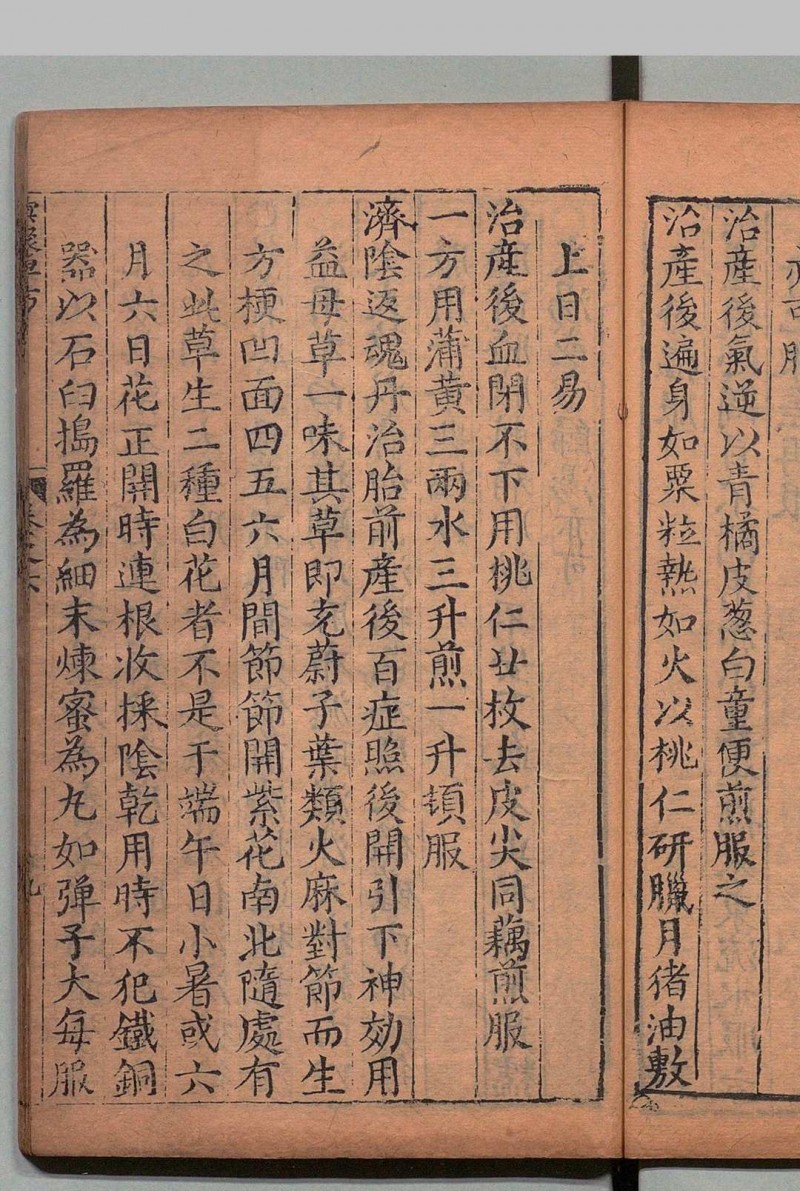 亦可服
治產後氣逆以青橘皮葱白童便煎服之
治產後遍身如粟粒熱如火以桃仁研臘月猪油敷
上日二易
治產後血閉不下用桃仁廿枚去皮尖同藕煎服
一方用蒲黃三兩水三升煎一升頓服
濟陰返魂丹治胎前產後百症照後開引下神効用
益母草一味其草即茺蔚子葉類火麻對節而生
方梗凹面四五六月間節節開紫花南北隨處有
之此草生二種白花者不是于端午日小暑或六
月六日花正開時連根收採陰乾用時不犯鐵銅
器以石臼搗羅為細末煉蜜為丸如弹子大每服